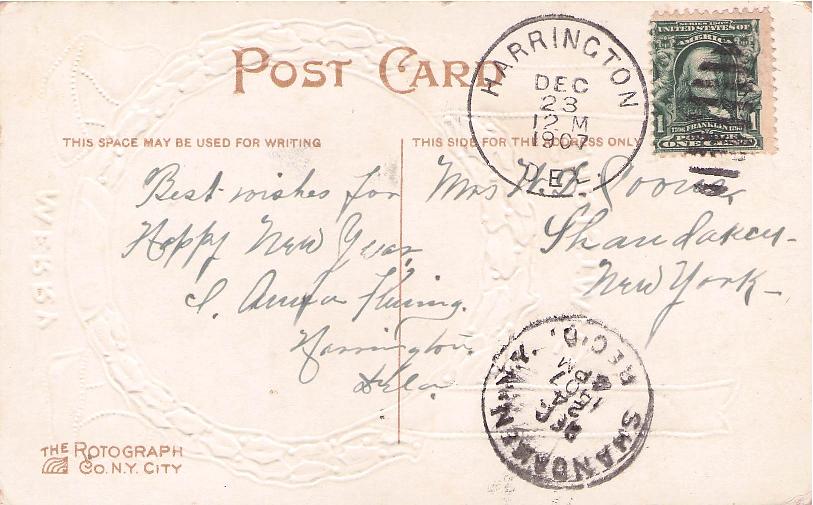 POST CARD
THIS SPACE MAY BE USED FOR WRITING
THIS SIDE FOR THE ADDRESS ONLY
HARRINGTON
DEC
23
12 M
1907
DEL.
SERIES 1902
UNITED STATES OF
AMERICA
1 1
FRANKLIN
POSTAGE
ONE CENT
Best wishes for
Happy New Year,
Harrington,
Dela
Mrs H.D.
Shandaken
New York
SHANDAKEN N.Y.
REC'D.
DEC
PM
07
THE ROTOGRAPH
CO. N.Y. CITY